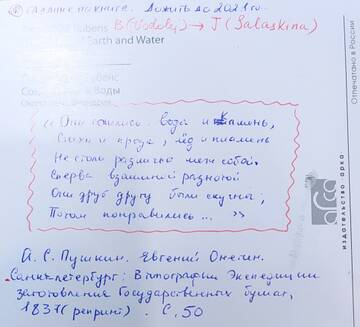 гадание по книге. Дожить до 2021 го..
Rubens B(Vodolej) → J(Salaskina)
Earth and Water
бенс
Воды
« Они сошлись. Вода и камень,
Стихи и проза, лёд и пламень
Не столь различны меж собой.
Сперва взаимной разнотой
Они друг другу были скучны;
Потом понравились... »
А. С. Пушкин. Евгений Онегин.
Санкт-Петербург: В типографии Экспедиции
заготовления Государственных бумаг,
1837 (репринт). С. 50
Отпечатано в России
арка
издательство арка